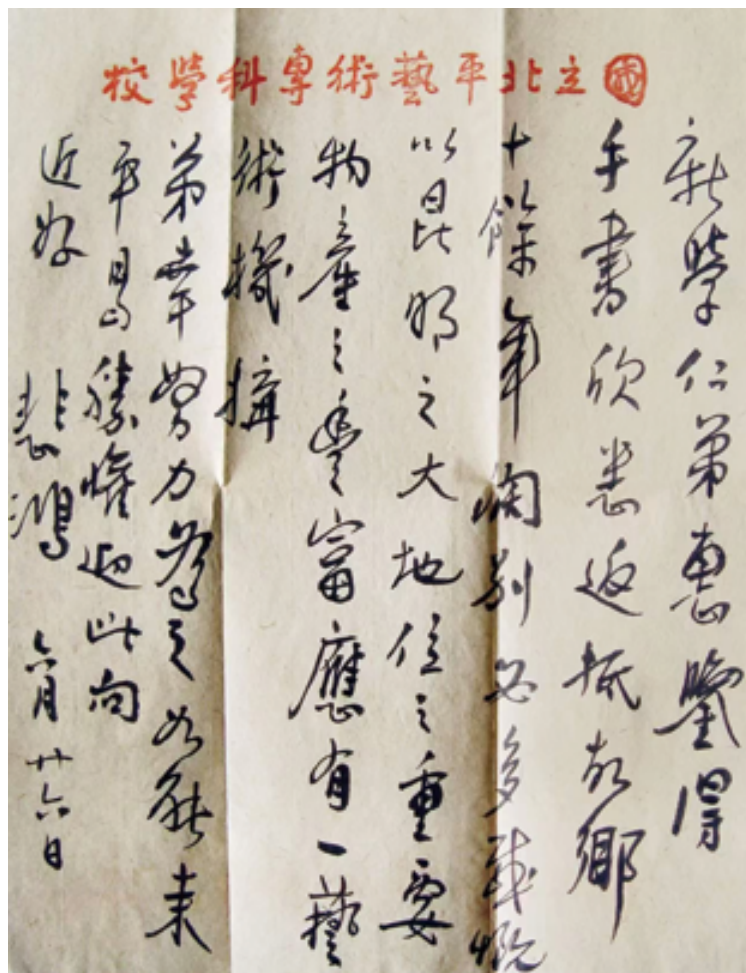 國立北平藝術專科學校
新學仁弟惠鑒得
手書欣悉返抵故鄉
十餘年闊別必多感慨
以昆明之大地位之重要
物產之豐富應有一藝
術機構
弟幸努力為之如能來
平曷勝懽迎此向
近好
悲鴻 六月廿六日